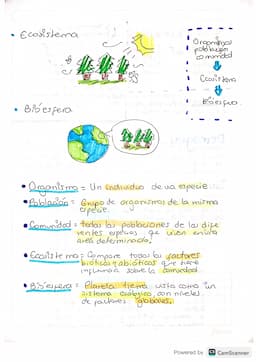 • Ecosistema
Organismos
población
comunidad
Ecosistema
Biósfera
• Biósfera
• Organismo = Un individuo de va especie
• Población = Grupo de organismos de la misma
especie.
• Comunidad = todas las poblaciones de las dife
rentes especies que viven en una
area determinada.
Ecosistema: Compare todos los factores
bioticos y abioticos que tiene
influencia sobre la comunidad
• Biósfera: Planeta tierra vista como un
sistema ecológico con niveles
de factores globales.
Powered by CS CamScanner